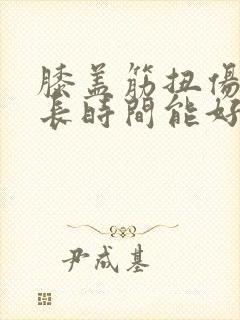 膝盖筋扭傷
長時間能好
尹成基